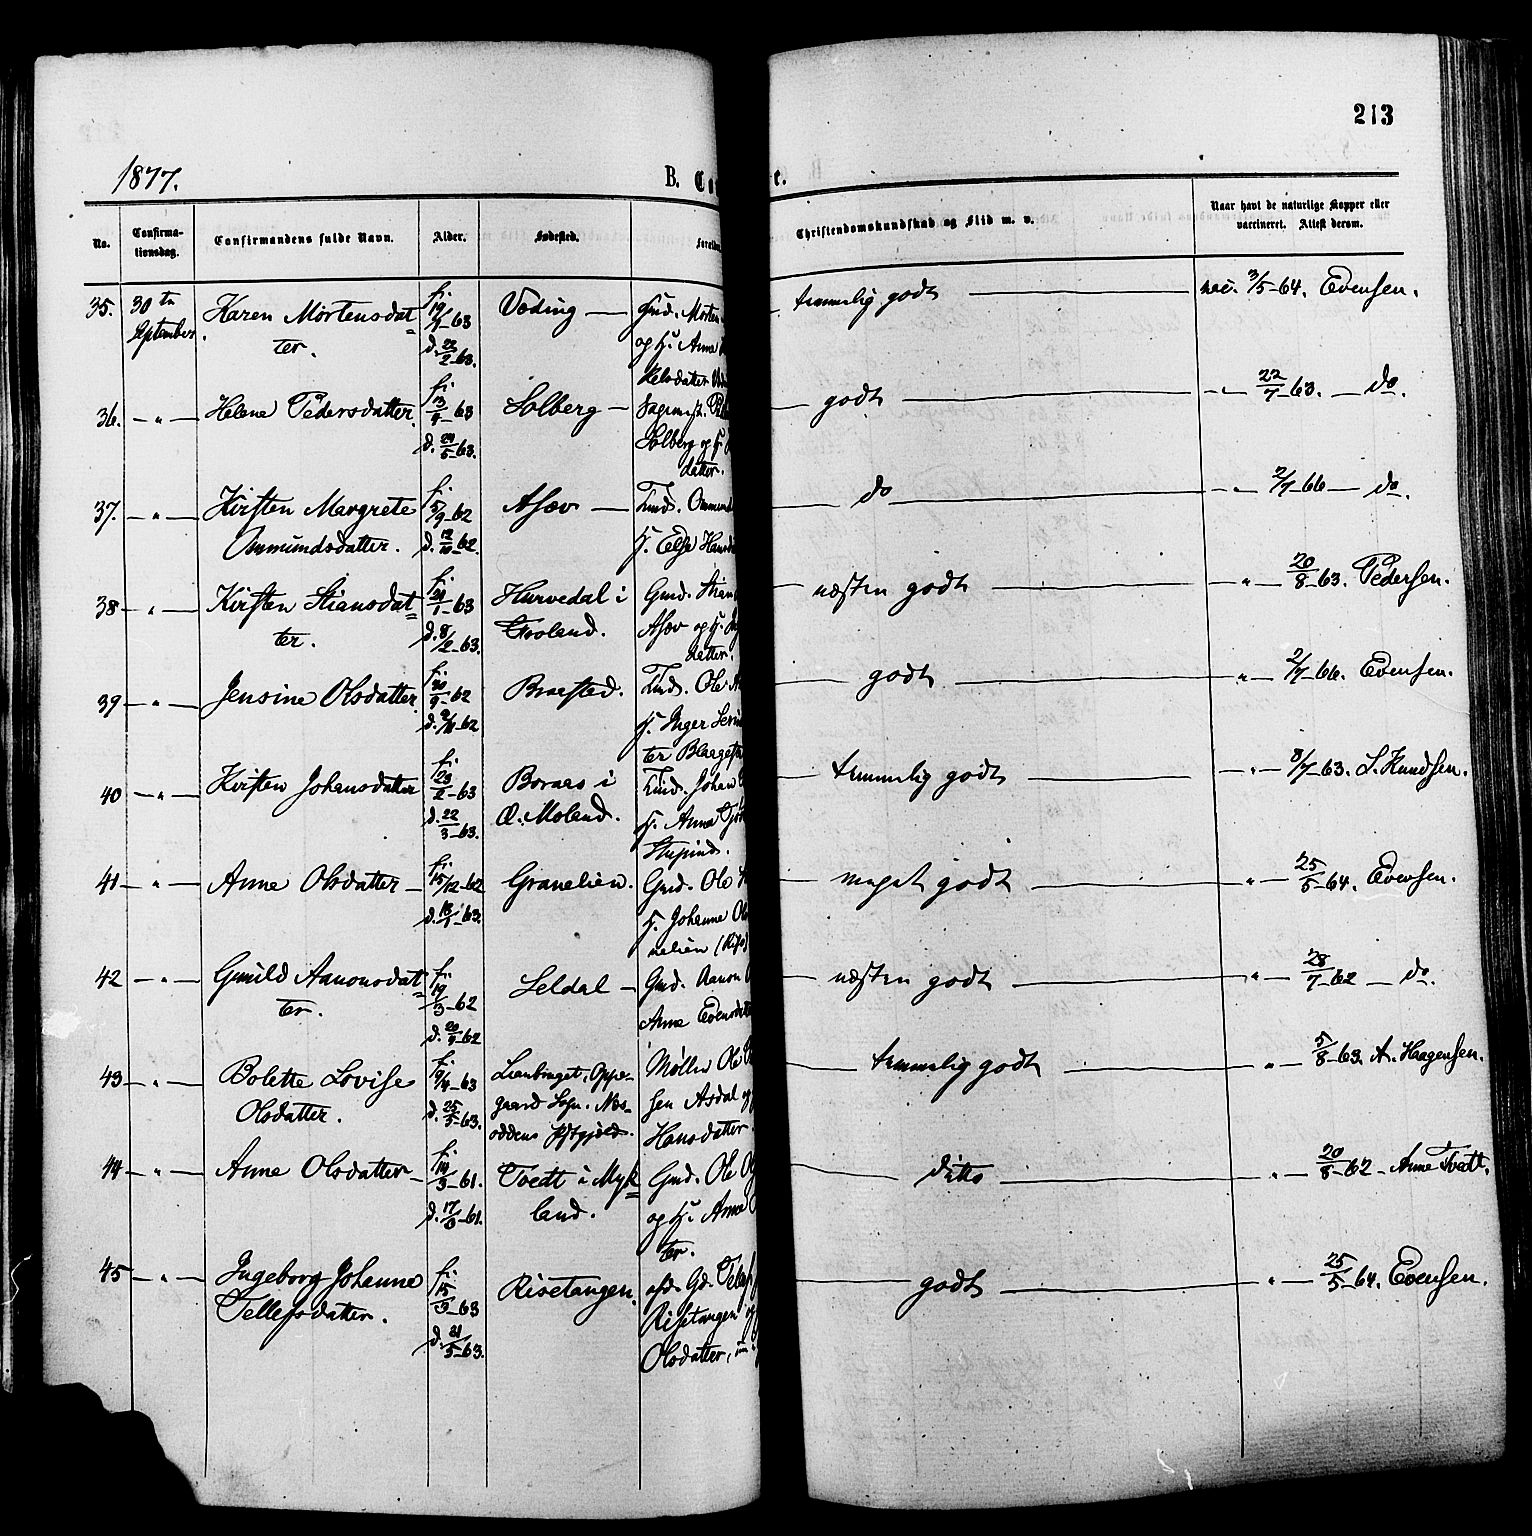 213
1877.
B. Co
e.
No.
Confirma-
tionsdag.
Confirmandens fulde Navn.
Alder.
Fødested.
Foreldre
Christendomskundskab og Flid m. v.
Naar havt de naturlige Kopper eller
vaccineret. Attest derom.
35. 30te September. Karen Mortensdat=
ter.
f. 19/1-63
d. 22/2-63.
Vöding
Gmd. Morten
og H. Anna
kelsdatter
temmelig godt
vac. 3/5-64. Evensen.
36. -"- Helene Pedersdatter.
f. 13/4-63
d. 24/5-63.
Solberg
Sagemst.
Solberg og H.
datter.
godt
-"- 22/7-63. do.
37. -"- Kirsten Margrete
Ommundsdatter.
f. 5/9-62
d. 12/10-62.
Asæv
Inds. Ommund
H. Else Hansd
do
-"- 2/7-66 do.
38 -"- Kirsten Stiansdat=
ter.
f. 21/1-63
d. 8/2-63.
Hurvedal i
Froland.
Gmd. Stian
Asæv og H.
datter.
næsten godt
" 20/8-63. Pedersen.
39 -"- Jensine Olsdatter.
f. 20/9-62
Braested.
Inds. Ole
H. Inger
ter
godt
" 2/7-66. Evensen.
40 -"- Kirsten Johansdatter
f. 23/2-63
d. 22/3-63.
Boraas i
Ø. Moland.
Inds. Johan
H. Anna
temmelig godt
-"- 8/7-63. S. Knudsen.
41 -"- Anne Olsdatter
f. 15/12-62
d. 18/1-63.
Granelien.
Gmd. Ole
H. Johanne Ol
nelien
meget godt
" 25/5-64. Evensen.
42 -"- Gunild Aanonsdat=
ter.
f. 19/3-62
d. 20/4-62
Seldal
Gmd. Aanon
Anne Evensdat
næsten godt
" 28/7-62 do.
43 -"- Bolette Lovise
Olsdatter.
f. 9/4-63
d. 25/5-63.
Lienbraget, Oppe-
gaard Sogn. Næs-
oddens
Møller Ole
sen Asdal og
Hansdatter
temmelig godt
" 5/8-63. A. Haagensen.
44 -"- Anne Olsdatter
f. 14/3-61.
Tvedt i Myk=
land.
Gmd. Ole
og H. Anne
ter.
ditto
" 20/8-62 - Anne Tvedt.
45 -"- Ingeborg Johanne
Tellefsdatter.
f. 15/3-63
d. 31/5-63.
Risetangen.
afd. Gd. Tellef
Risetangen og
Olsdatter,
godt
" 25/5-64. Evensen.